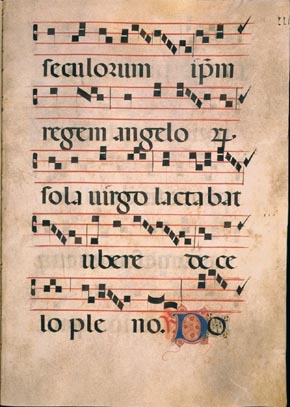 seculorum ip̄m
regem angelo ꝝ
sola uirgo lactabat
ubere de ce
lo ple no. Do